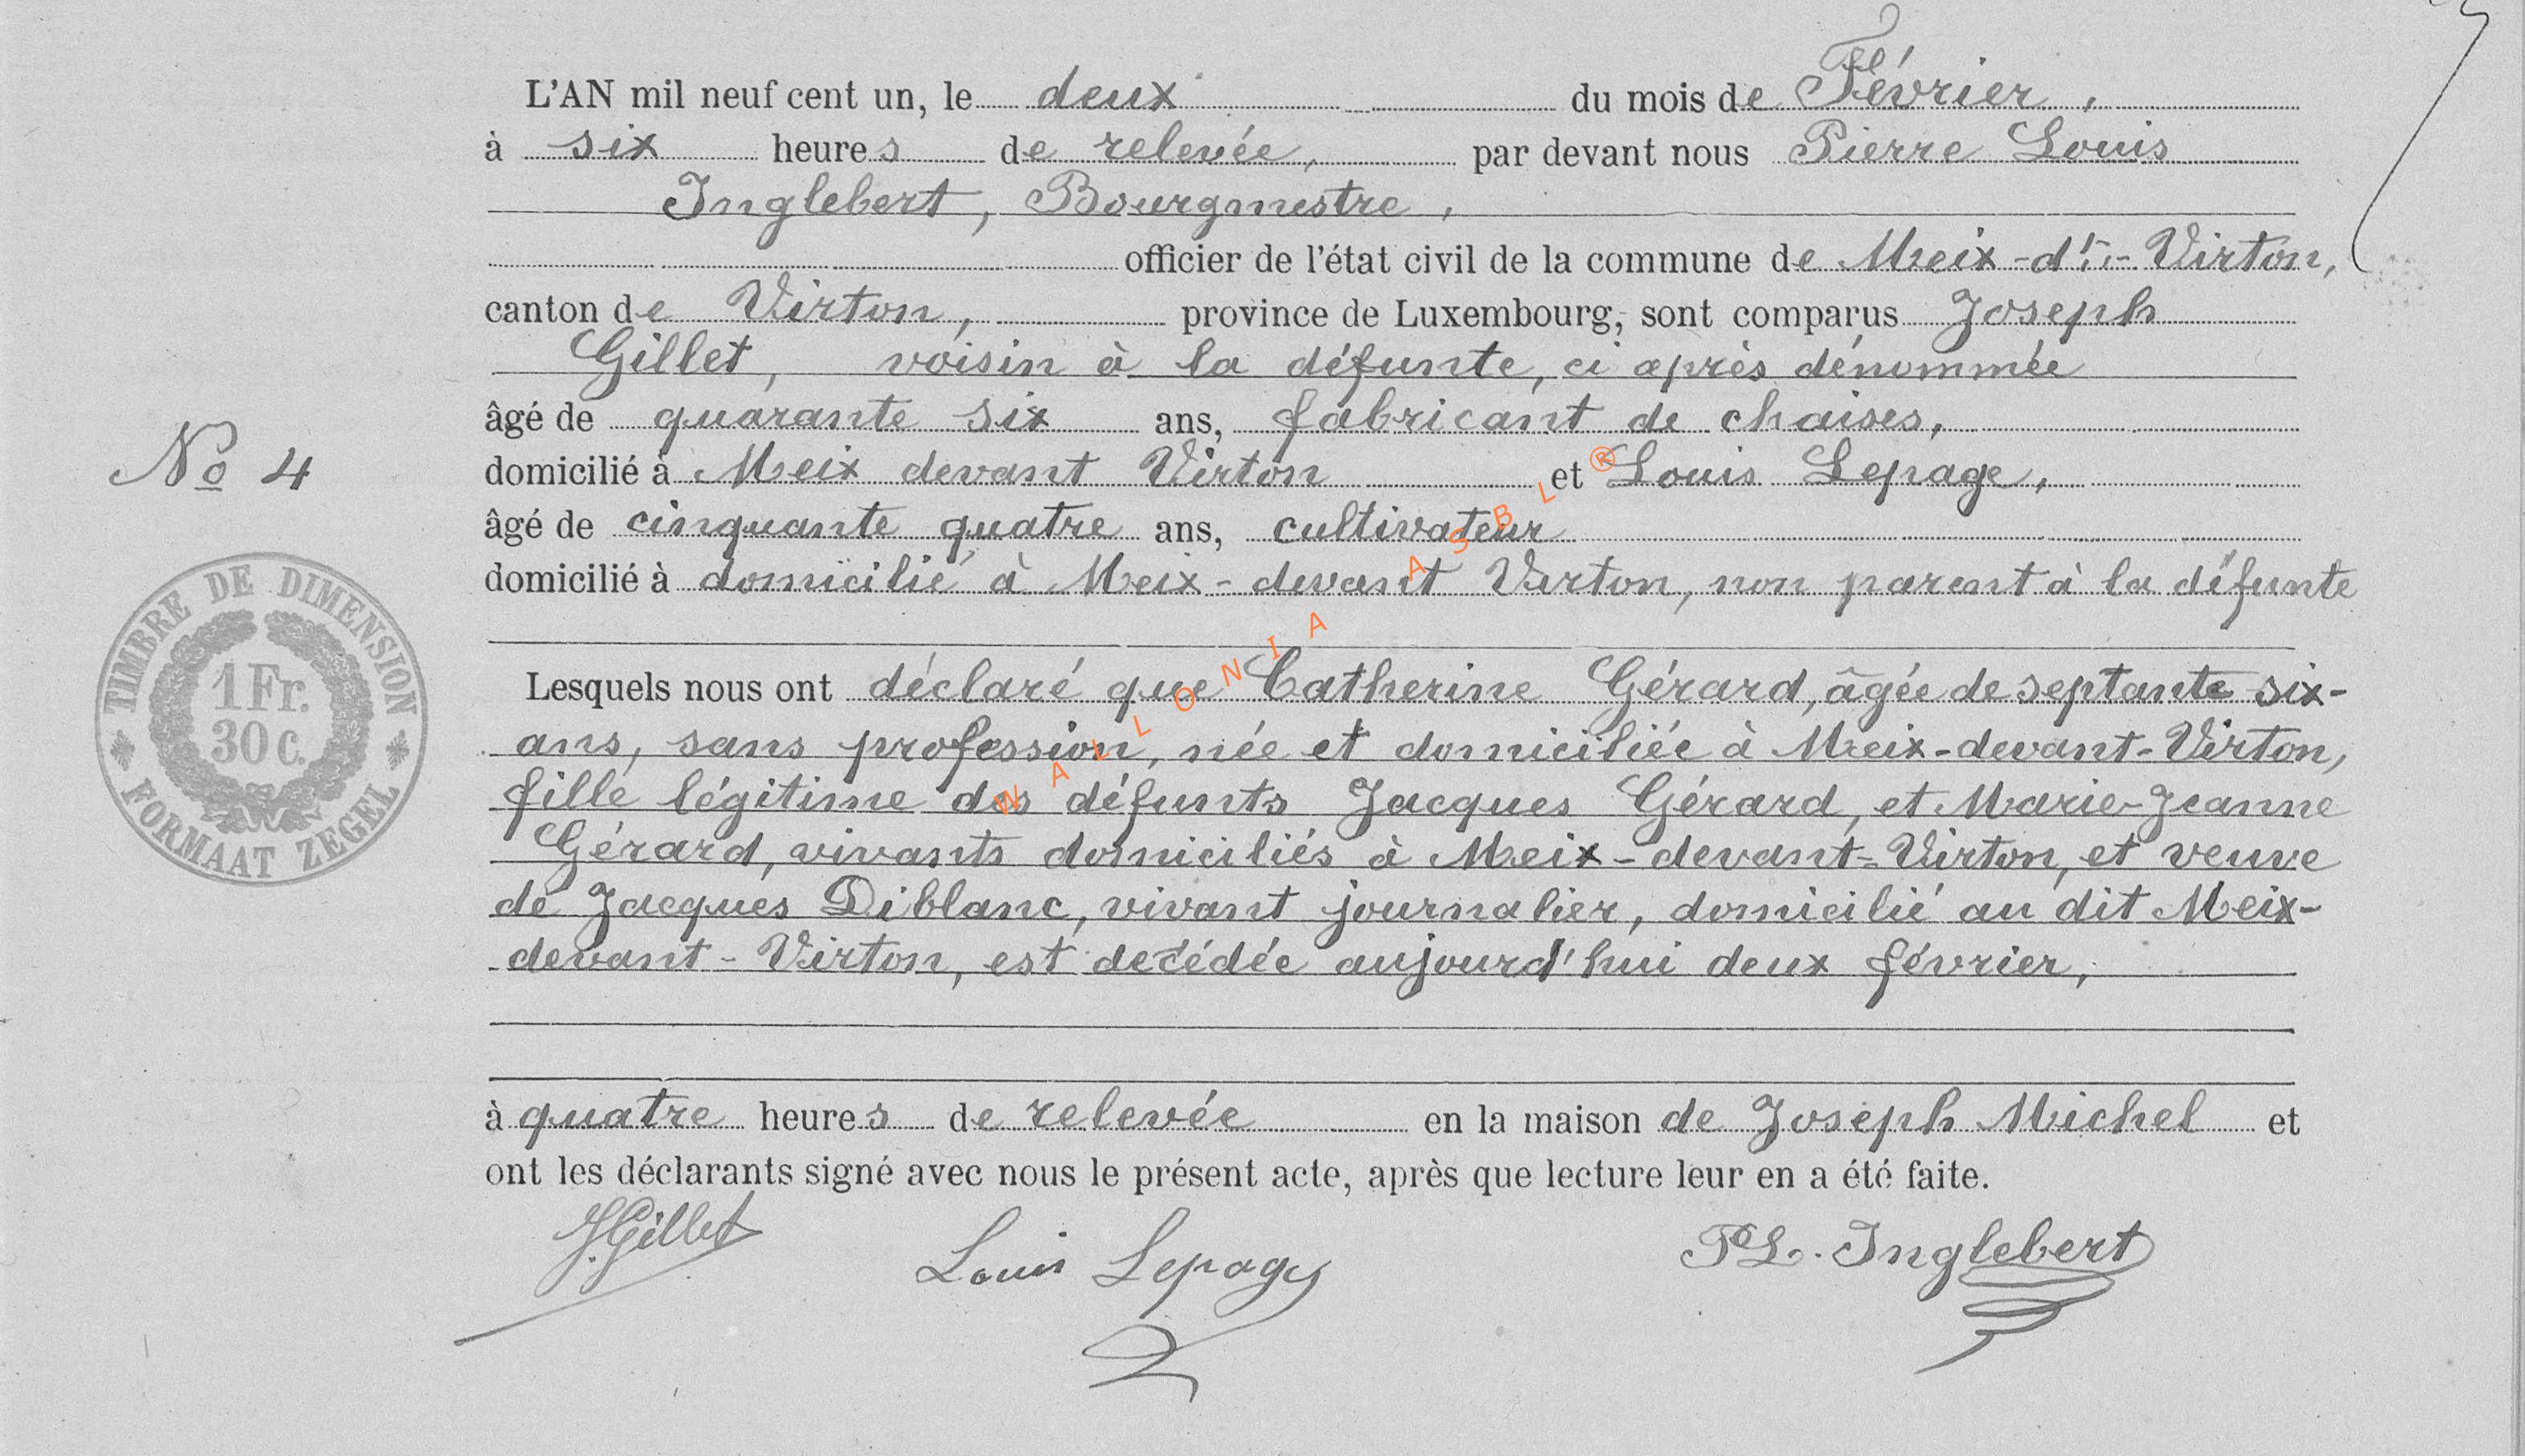 L'AN mil neuf cent un, le deux du mois de Février,
à six heures de relevée, par devant nous Pierre Louis
Inglebert, Bourgmestre,
officier de l'état civil de la commune de Meix-dt-Virton,
canton de Virton, province de Luxembourg, sont comparus Joseph
Gillet, voisin à la défunte, ci après dénommée
âgé de quarante six ans, fabricant de chaises,
No 4
domicilié à Meix devant Virton et Louis Lepage,
âgé de cinquante quatre ans, cultivateur
domicilié à domicilié à Meix-devant Virton, non parent à la défunte
TIMBRE DE DIMENSION
1 Fr.
30 c.
FORMAAT ZEGEL
WALLONIA ASBL ®
Lesquels nous ont déclaré que Catherine Gérard, âgée de septante six-
ans, sans profession, née et domiciliée à Meix-devant-Virton,
fille légitime des défunts Jacques Gérard, et Marie-Jeanne
Gérard, vivants domiciliés à Meix-devant-Virton, et veuve
de Jacques Diblanc, vivant journalier, domicilié au dit Meix-
devant-Virton, est decédée aujourd'hui deux février,
à quatre heures de relevée en la maison de Joseph Michel et
ont les déclarants signé avec nous le présent acte, après que lecture leur en a été faite.
J. Gillet Louis Lepage P. L. Inglebert